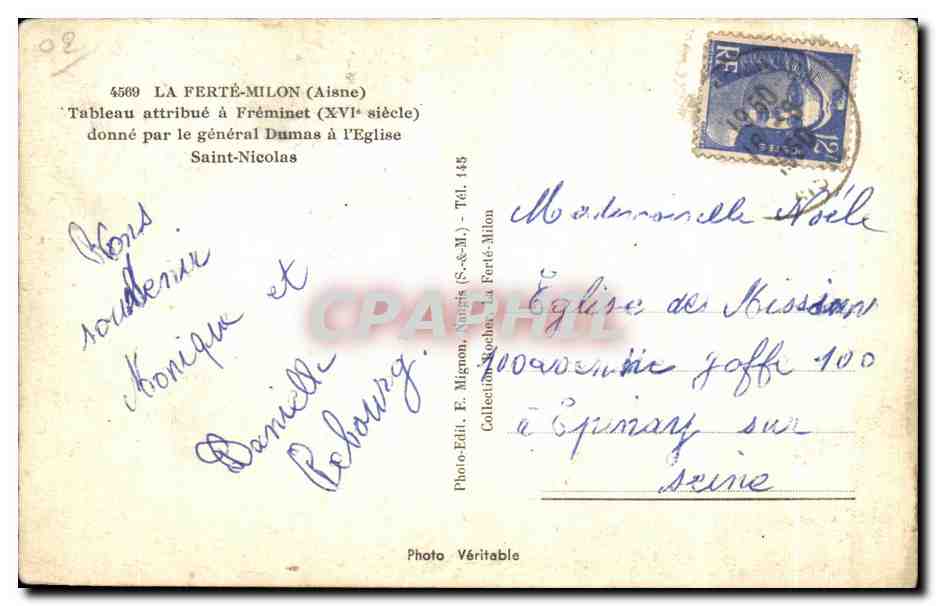 02
4569 LA FERTÉ-MILON (Aisne)
Tableau attribué à Fréminet (XVIe siècle)
donné par le général Dumas à l'Eglise
Saint-Nicolas
Photo-Edit. F. Mignon, Nangis (S.-&-M.) - Tél. 145
Collection Rocher, La Ferté-Milon
RF
12F
POSTES
1950
Bons
souvenir
Monique et
Danielle
Rebourg.
Mademoiselle Noéle
Eglise des Mission
100 avenue Joffe 100
à Epinay sur
seine
CPAPHIL
Photo Véritable